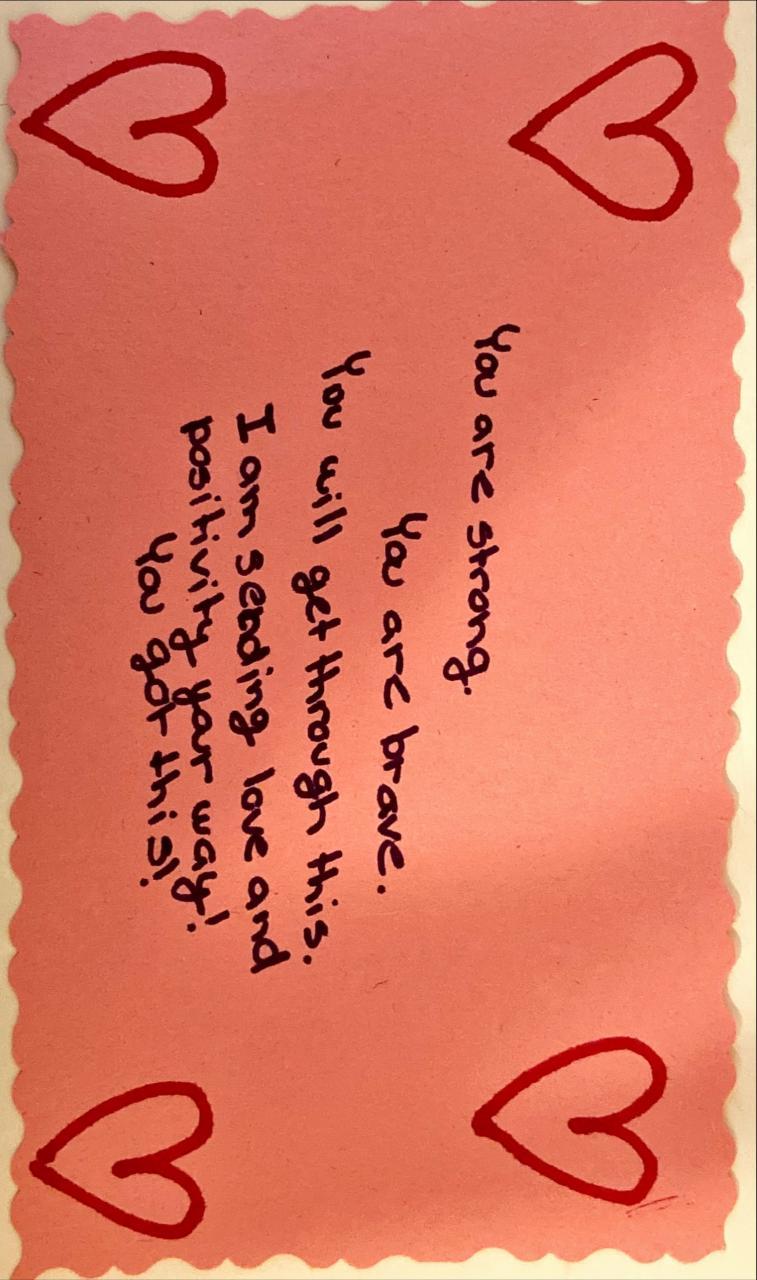 You are strong.
You are brave.
You will get through this.
I am sending love and
positivity your way!
You got this!